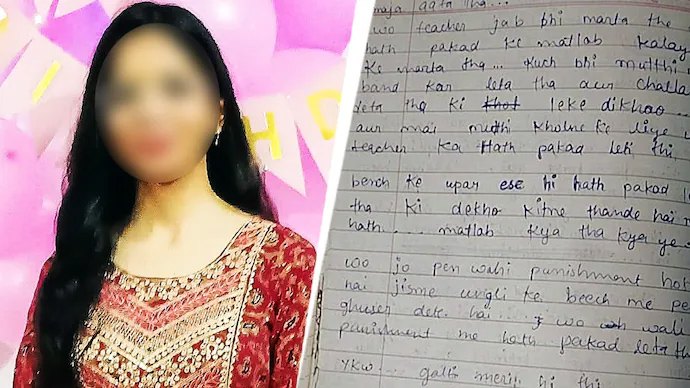 maja aata tha...
wo teacher jab bhi marta the
hath pakad ke matlab kalay
ke marta tha... kuch bhi mutthi
band kar leta tha aur challa
deta tha ki leke dikhao...
aur mai muthi kholne ke liye
teacher ka Hath pakad leti thi
bench ke upar ese hi hath pakad
tha ki dekho kitne thande hai
hath.... matlab kya tha kya ye
wo jo pen wahi punishment hot
hai jisme ungli ke beech me pe
ghuser dete hai... wo wali
punishment me hath pakad leta th
ykw galti meri hi thi
H D